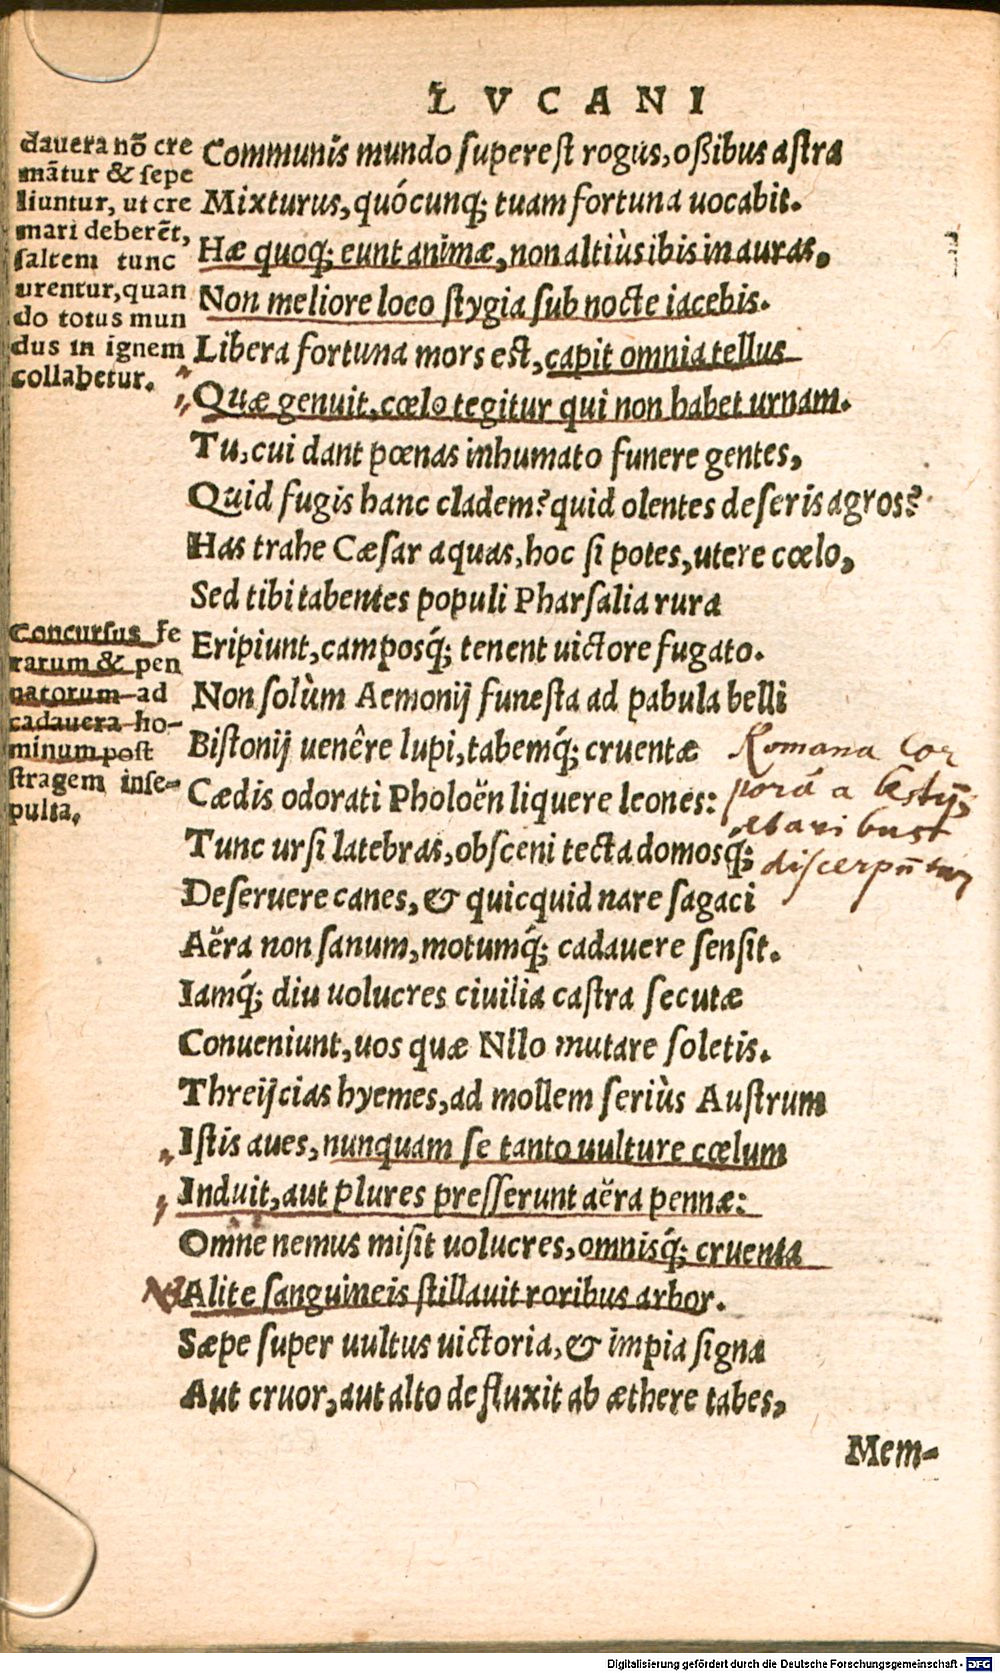 LVCANI
dauera nõ cre
mãtur & sepe
liuntur, ut cre
mari deberẽt,
saltem tunc
urentur, quan
do totus mun
dus in ignem
collabetur.
Communis mundo superest rogus, oßibus astra
Mixturus, quócunq; tuam fortuna uocabit.
Hæ quoq; eunt animæ, non altiùs ibis in auras,
Non meliore loco stygia sub nocte iacebis.
Libera fortuna mors est, capit omnia tellus
Quæ genuit, cœlo tegitur qui non habet urnam.
Tu, cui dant pœnas inhumato funere gentes,
Quid fugis hanc cladem? quid olentes deseris agros?
Has trahe Cæsar aquas, hoc si potes, utere cœlo,
Sed tibi tabentes populi Pharsalia rura
Eripiunt, camposq́; tenent uictore fugato.
Concursus fe
rarum & pen
natorum ad
cadauera ho-
minum post
stragem inse-
pulta.
Non solùm Aemonij funesta ad pabula belli
Bistonij uenêre lupi, tabemq́; cruentæ
Cædis odorati Pholoën liquere leones:
Tunc ursi latebras, obsceni tecta domosq́;
Deseruere canes, & quicquid nare sagaci
Aëra non sanum, motumq́; cadauere sensit.
Romana cor
pora a bestijs
et avibus
discerpũtur
Iamq́; diu uolucres ciuilia castra secutæ
Conueniunt, uos quæ Nilo mutare soletis.
Threijcias hyemes, ad mollem seriùs Austrum
Istis aues, nunquam se tanto uulture cœlum
Induit, aut plures presserunt aëra pennæ:
Omne nemus misit uolucres, omnisq́; cruenta
Alite sanguineis stillauit roribus arbor.
Sæpe super uultus uictoria, & impia signa
Aut cruor, aut alto defluxit ab æthere tabes,
Mem-
Digitalisierung gefördert durch die Deutsche Forschungsgemeinschaft - DFG